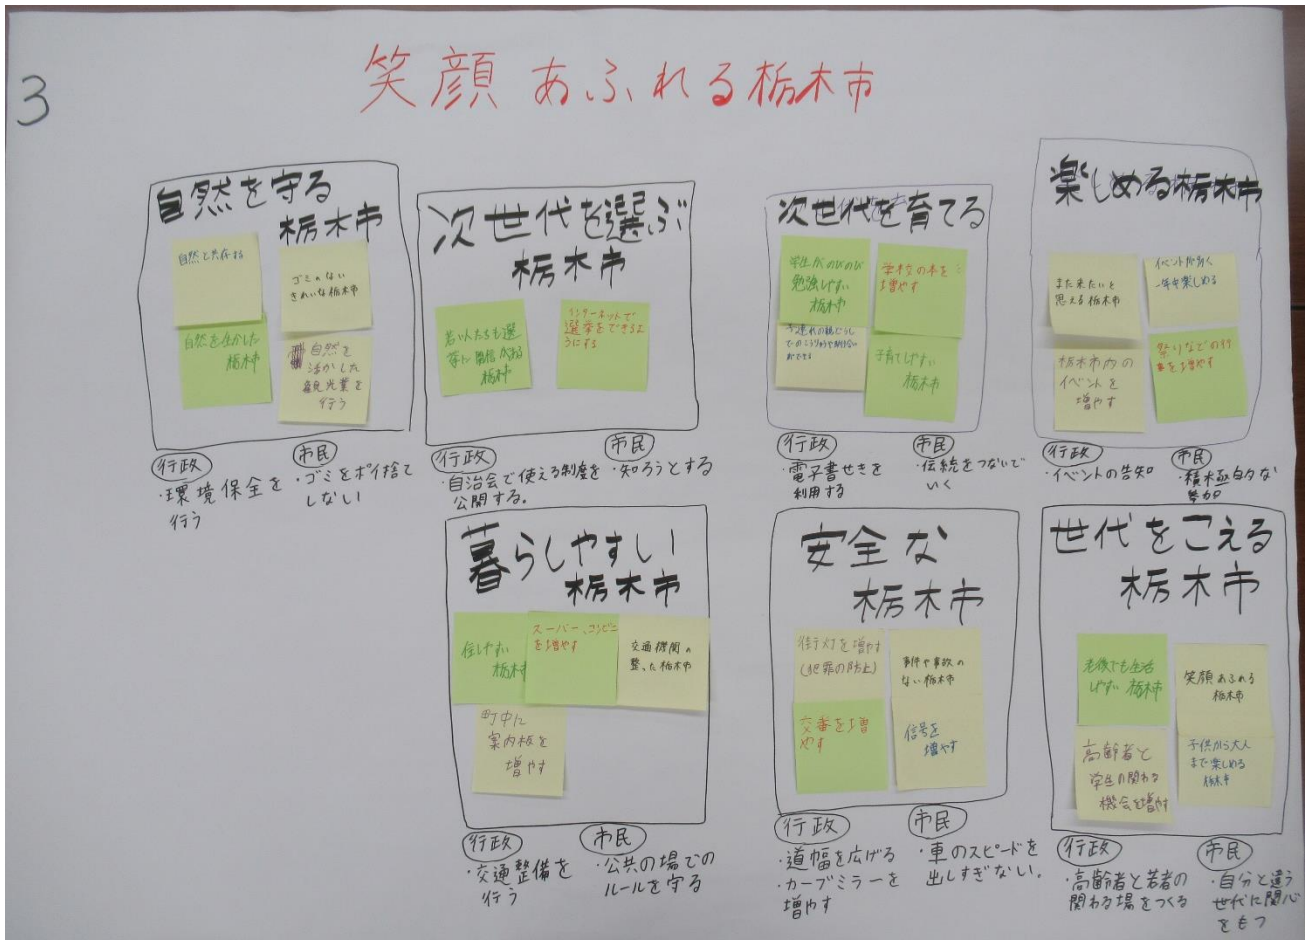 3
笑顔あふれる栃木市
自然を守る
栃木市
自然と共存する
ゴミのない
きれいな栃木市
自然を生かした
栃木市
自然を
活かした
観光業を
行う
行政
・環境保全を
行う
市民
・ゴミをポイ捨て
しない
次世代を選ぶ
栃木市
若い人たちも選
挙に関心がある
栃木市
インターネットで
選挙をできるよ
うにする
行政
・自治会で使える制度を
公開する。
市民
・知ろうとする
次世代を育てる
学生がのびのび
勉強しやすい
栃木市
学校の本を
増やす
子連れの親どうし
でのこうりゅうや助け合い
ができる
子育てしやすい
栃木市
行政
・電子書せきを
利用する
市民
・伝統をつないで
いく
楽しめる栃木市
また来たいと
思える栃木市
イベントが多く
一年中楽しめる
栃木市内の
イベントを
増やす
祭りなどの行
事を増やす
行政
・イベントの告知
市民
・積極的な
参加
暮らしやすい
栃木市
住しやすい
栃木市
スーパー、コンビニ
を増やす
交通機関の
整った栃木市
町中に
案内板を
増やす
行政
・交通整備を
行う
市民
・公共の場での
ルールを守る
安全な
栃木市
街灯を増やす
(犯罪の防止)
事件や事故の
ない栃木市
交番を増
やす
信号を
増やす
行政
・道幅を広げる
・カーブミラーを
増やす
市民
・車のスピードを
出しすぎない。
世代をこえる
栃木市
老後でも生活
しやすい栃木市
笑顔あふれる
栃木市
高齢者と
学生の関わる
機会を増やす
子供から大人
まで楽しめる
栃木市
行政
・高齢者と若者の
関わる場をつくる
市民
・自分と違う
世代に関心
をもつ